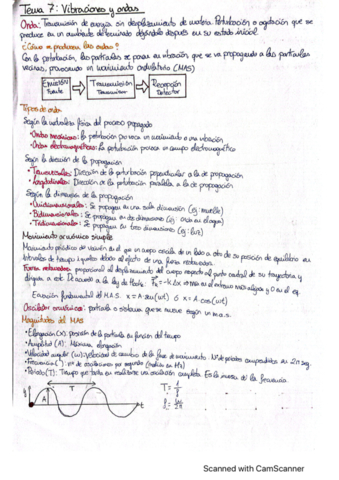 Tema 7: Vibraciones y ondas
Onda: Transmisión de energía sin desplazamiento de materia. Perturbación o agitación que se
produce en un ambiente determinado dejándolo después en su estado inicial
¿Cómo se producen las ondas?
Con la perturbación, las partículas se ponen en vibración que se va propagando a las partículas
vecinas, provocando un movimiento ondulatorio (MAS)
Emisión Fuente → Transmisión Transmisor → Recepción Detector
Tipos de onda
Según la naturaleza física del proceso propagado
· Ondas mecánicas: la perturbación provoca un movimiento o una vibración
· Ondas electromagnéticas: la perturbación provoca un campo electromagnético
Según la dirección de la propagación
· Transversales: Dirección de la perturbación perpendicular a la de propagación
· Longitudinales: Dirección de la perturbación paralela a la de propagación
Según la dimensión de la propagación
· Unidimensionales: Se propagan en una sola dimensión (ej: muelle)
· Bidimensionales: Se propagan en dos dimensiones (ej: onda en el agua)
· Tridimensionales: Se propagan en tres dimensiones (ej: luz)
Movimiento armónico simple
Movimiento periódico de vaivén en el que un cuerpo oscila de un lado a otro de su posición de equilibrio en
intervalos de tiempo iguales debido al efecto de una fuerza restauradora.
Fuerza restauradora: proporcional al desplazamiento del cuerpo respecto al punto central de su trayectoria y
dirigida a este. De acuerdo a la ley de Hooke: F = -k·Δx es máx en el extremo más alejado y 0 en el eq.
Ecuación fundamental del M.A.S. x = A·sen(ωt) ó x = A·cos(ωt)
Oscilador armónico: partícula o sistema que se mueve según un m.a.s.
Magnitudes del MAS
· Elongación (x): posición de la partícula en función del tiempo
· Amplitud (A): Máxima elongación
· Velocidad angular (ω): velocidad de cambio de la fase de movimiento. Nº de periodos comprendidos en 2π seg.
· Frecuencia (f): nº de oscilaciones por segundo (medida en Hz)
· Periodo (T): Tiempo que tarda en realizarse una oscilación completa. Es la inversa de la frecuencia.
T
A
t
T = 1/f
f = ω/2π
Scanned with CamScanner